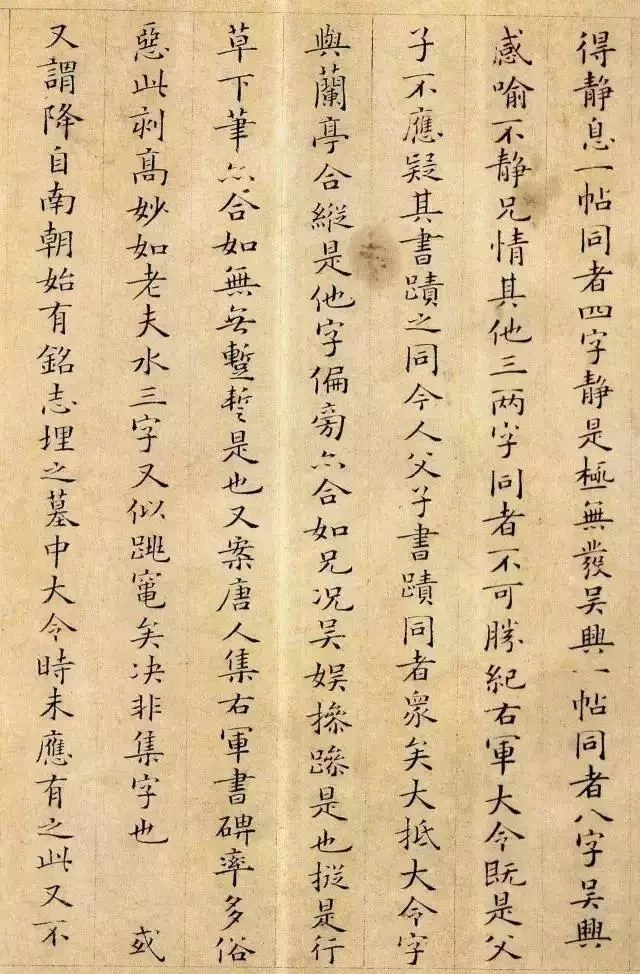 得静息一帖同者四字静是極無發吴興一帖同者八字吴興
感喻不静兄情其他三两字同者不可勝紀右軍大令既是父
子不應疑其書蹟之同今人父子書蹟同者衆矣大抵大令字
與蘭亭合縱是他字偏旁亦合如兄况吴娱摻蹝是也摐是行
草下筆亦合如無无蹔誓是也又案唐人集右軍書碑率多俗
惡此剥高妙如老夫水三字又似跳竃矣决非集字也 或
又謂降自南朝始有銘志埋之墓中大令時未應有之此又不